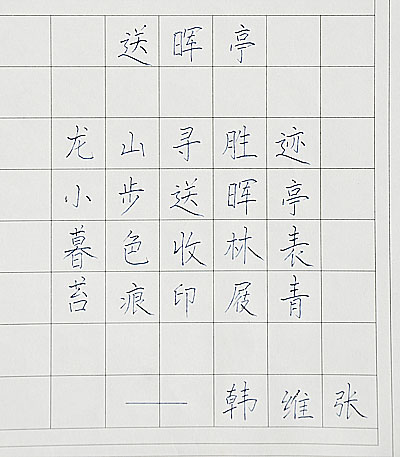 送晖亭
龙山寻胜迹
小步送晖亭
暮色收林表
苔痕印屐青
——韩维张